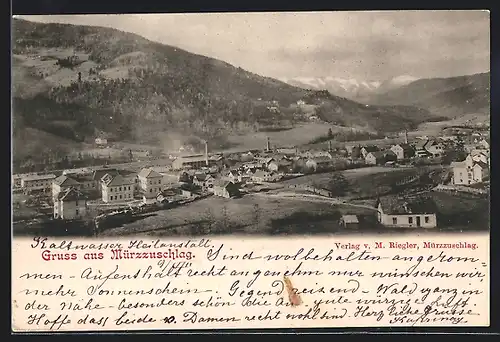 Kaltwasser Heilanstalt.
Gruss aus Mürzzuschlag.
Verlag v. M. Riegler, Mürzzuschlag.
Sind wohlbehalten angekom-
men - Aufenthalt recht angenehm nur wünschen wir
mehr Sonnenschein - Gegend reizend - Wald ganz in
der Nähe - besonders schön die gute würzige Luft
Hoffe dass beide Damen recht wohl sind Herzliche Grüsse